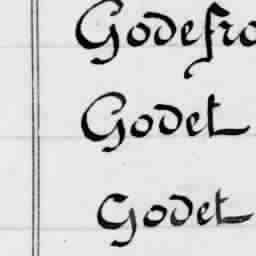 Godefro
Godet
Godet